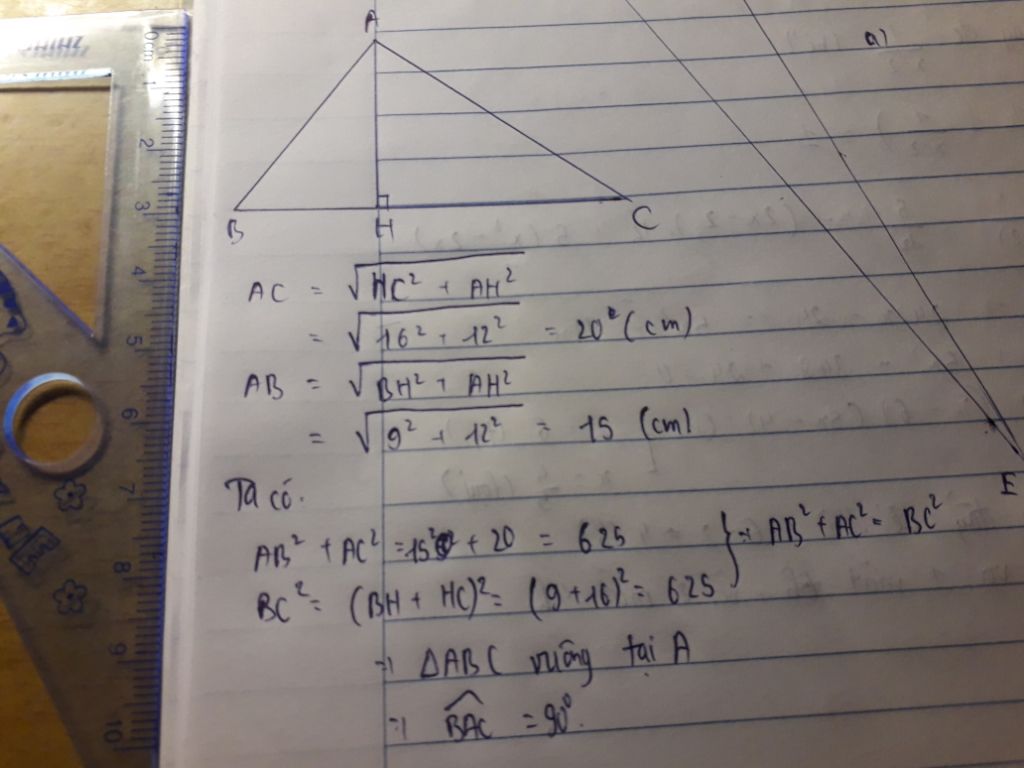 A
a)
B
H
C
AC = √HC² + AH²
= √16² + 12² = 20 (cm)
AB = √BH² + AH²
= √9² + 12² = 15 (cm)
E
Ta có.
AB² + AC² = 15² + 20 = 625
BC² = (BH + HC)² = (9+16)² = 625 } ⇒ AB² + AC² = BC²
⇒ ΔABC vuông tại A
⇒ BAC = 90⁰.
0cm
1
2
3
4
5
6
7
8
9
10